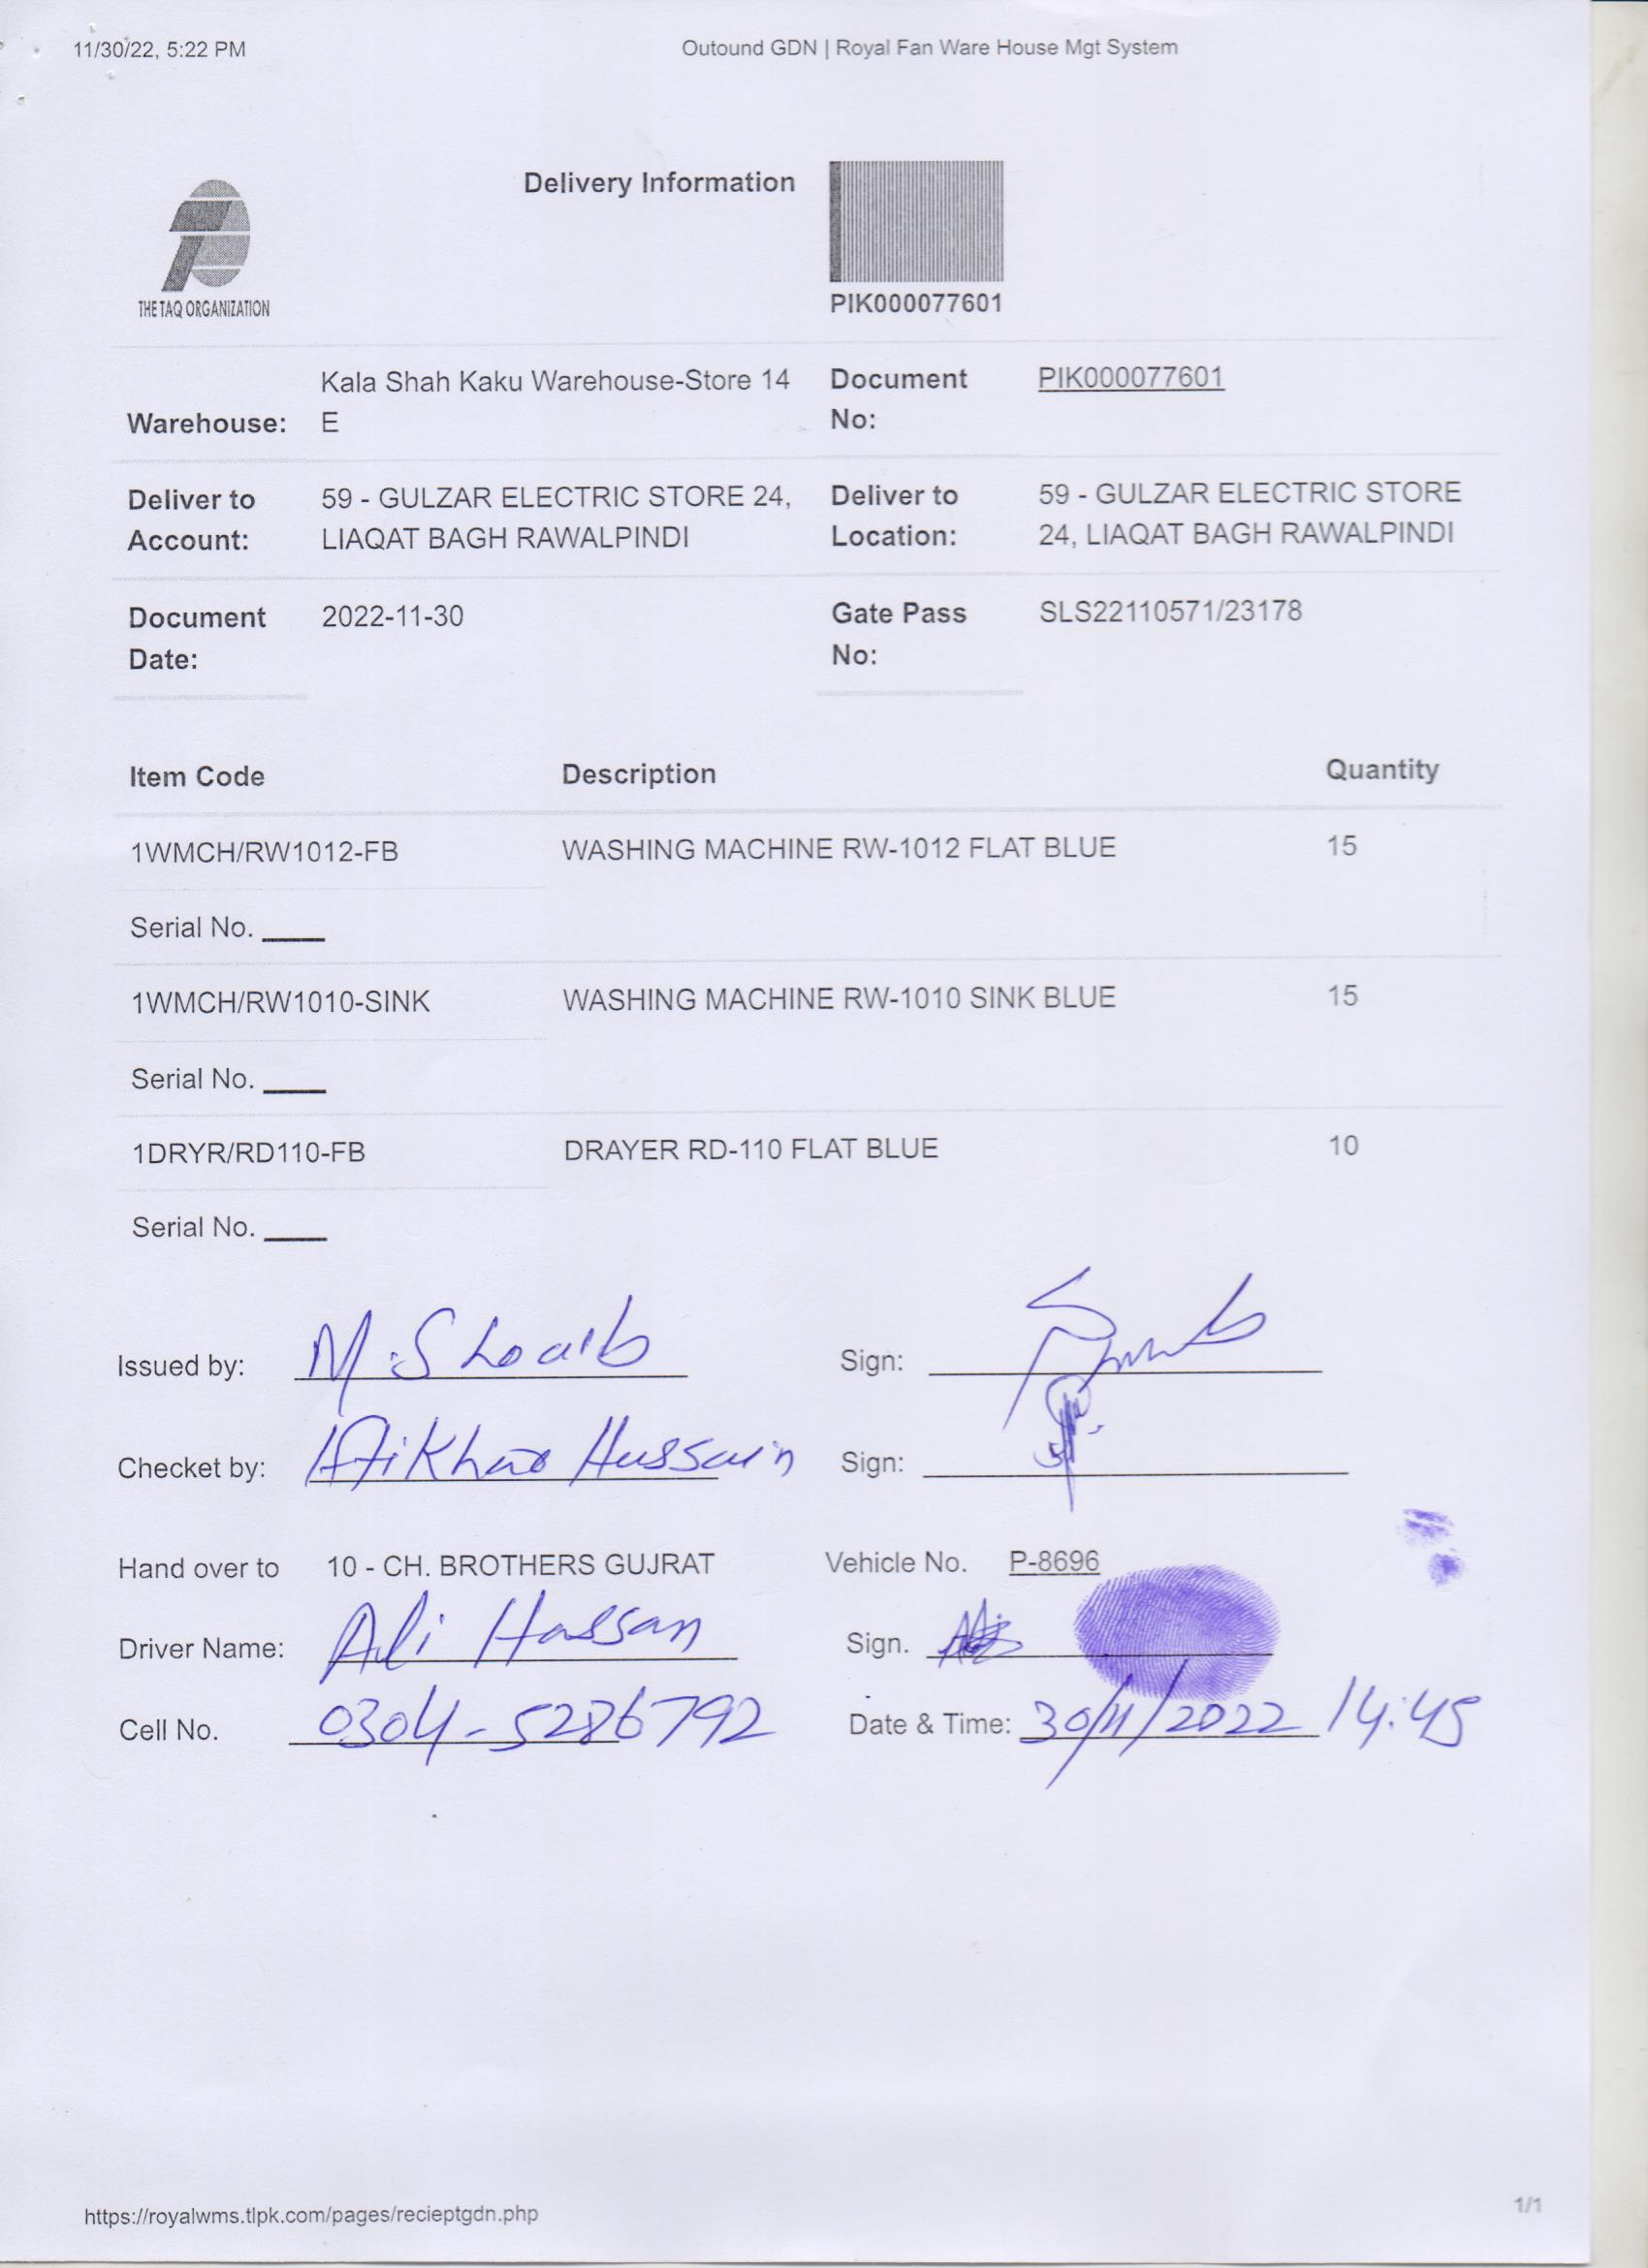 11/30/22, 5:22 PM
Outound GDN | Royal Fan Ware House Mgt System
THE TAQ ORGANIZATION
Delivery Information
PIK000077601
Warehouse: Kala Shah Kaku Warehouse-Store 14
E
Document
No: PIK000077601
Deliver to
Account: 59 - GULZAR ELECTRIC STORE 24,
LIAQAT BAGH RAWALPINDI
Deliver to
Location: 59 - GULZAR ELECTRIC STORE
24, LIAQAT BAGH RAWALPINDI
Document
Date: 2022-11-30
Gate Pass
No: SLS22110571/23178
Item Code Description Quantity
1WMCH/RW1012-FB WASHING MACHINE RW-1012 FLAT BLUE 15
Serial No.
1WMCH/RW1010-SINK WASHING MACHINE RW-1010 SINK BLUE 15
Serial No.
1DRYR/RD110-FB DRAYER RD-110 FLAT BLUE 10
Serial No.
Issued by: M. Shoaib Sign:
Checket by: Iftikhar Hussain Sign:
Hand over to 10 - CH. BROTHERS GUJRAT Vehicle No. P-8696
Driver Name: Ali Hassan Sign.
Cell No. 0304-5286792 Date & Time: 30/11/2022 14:45
https://royalwms.tlpk.com/pages/recieptgdn.php
1/1